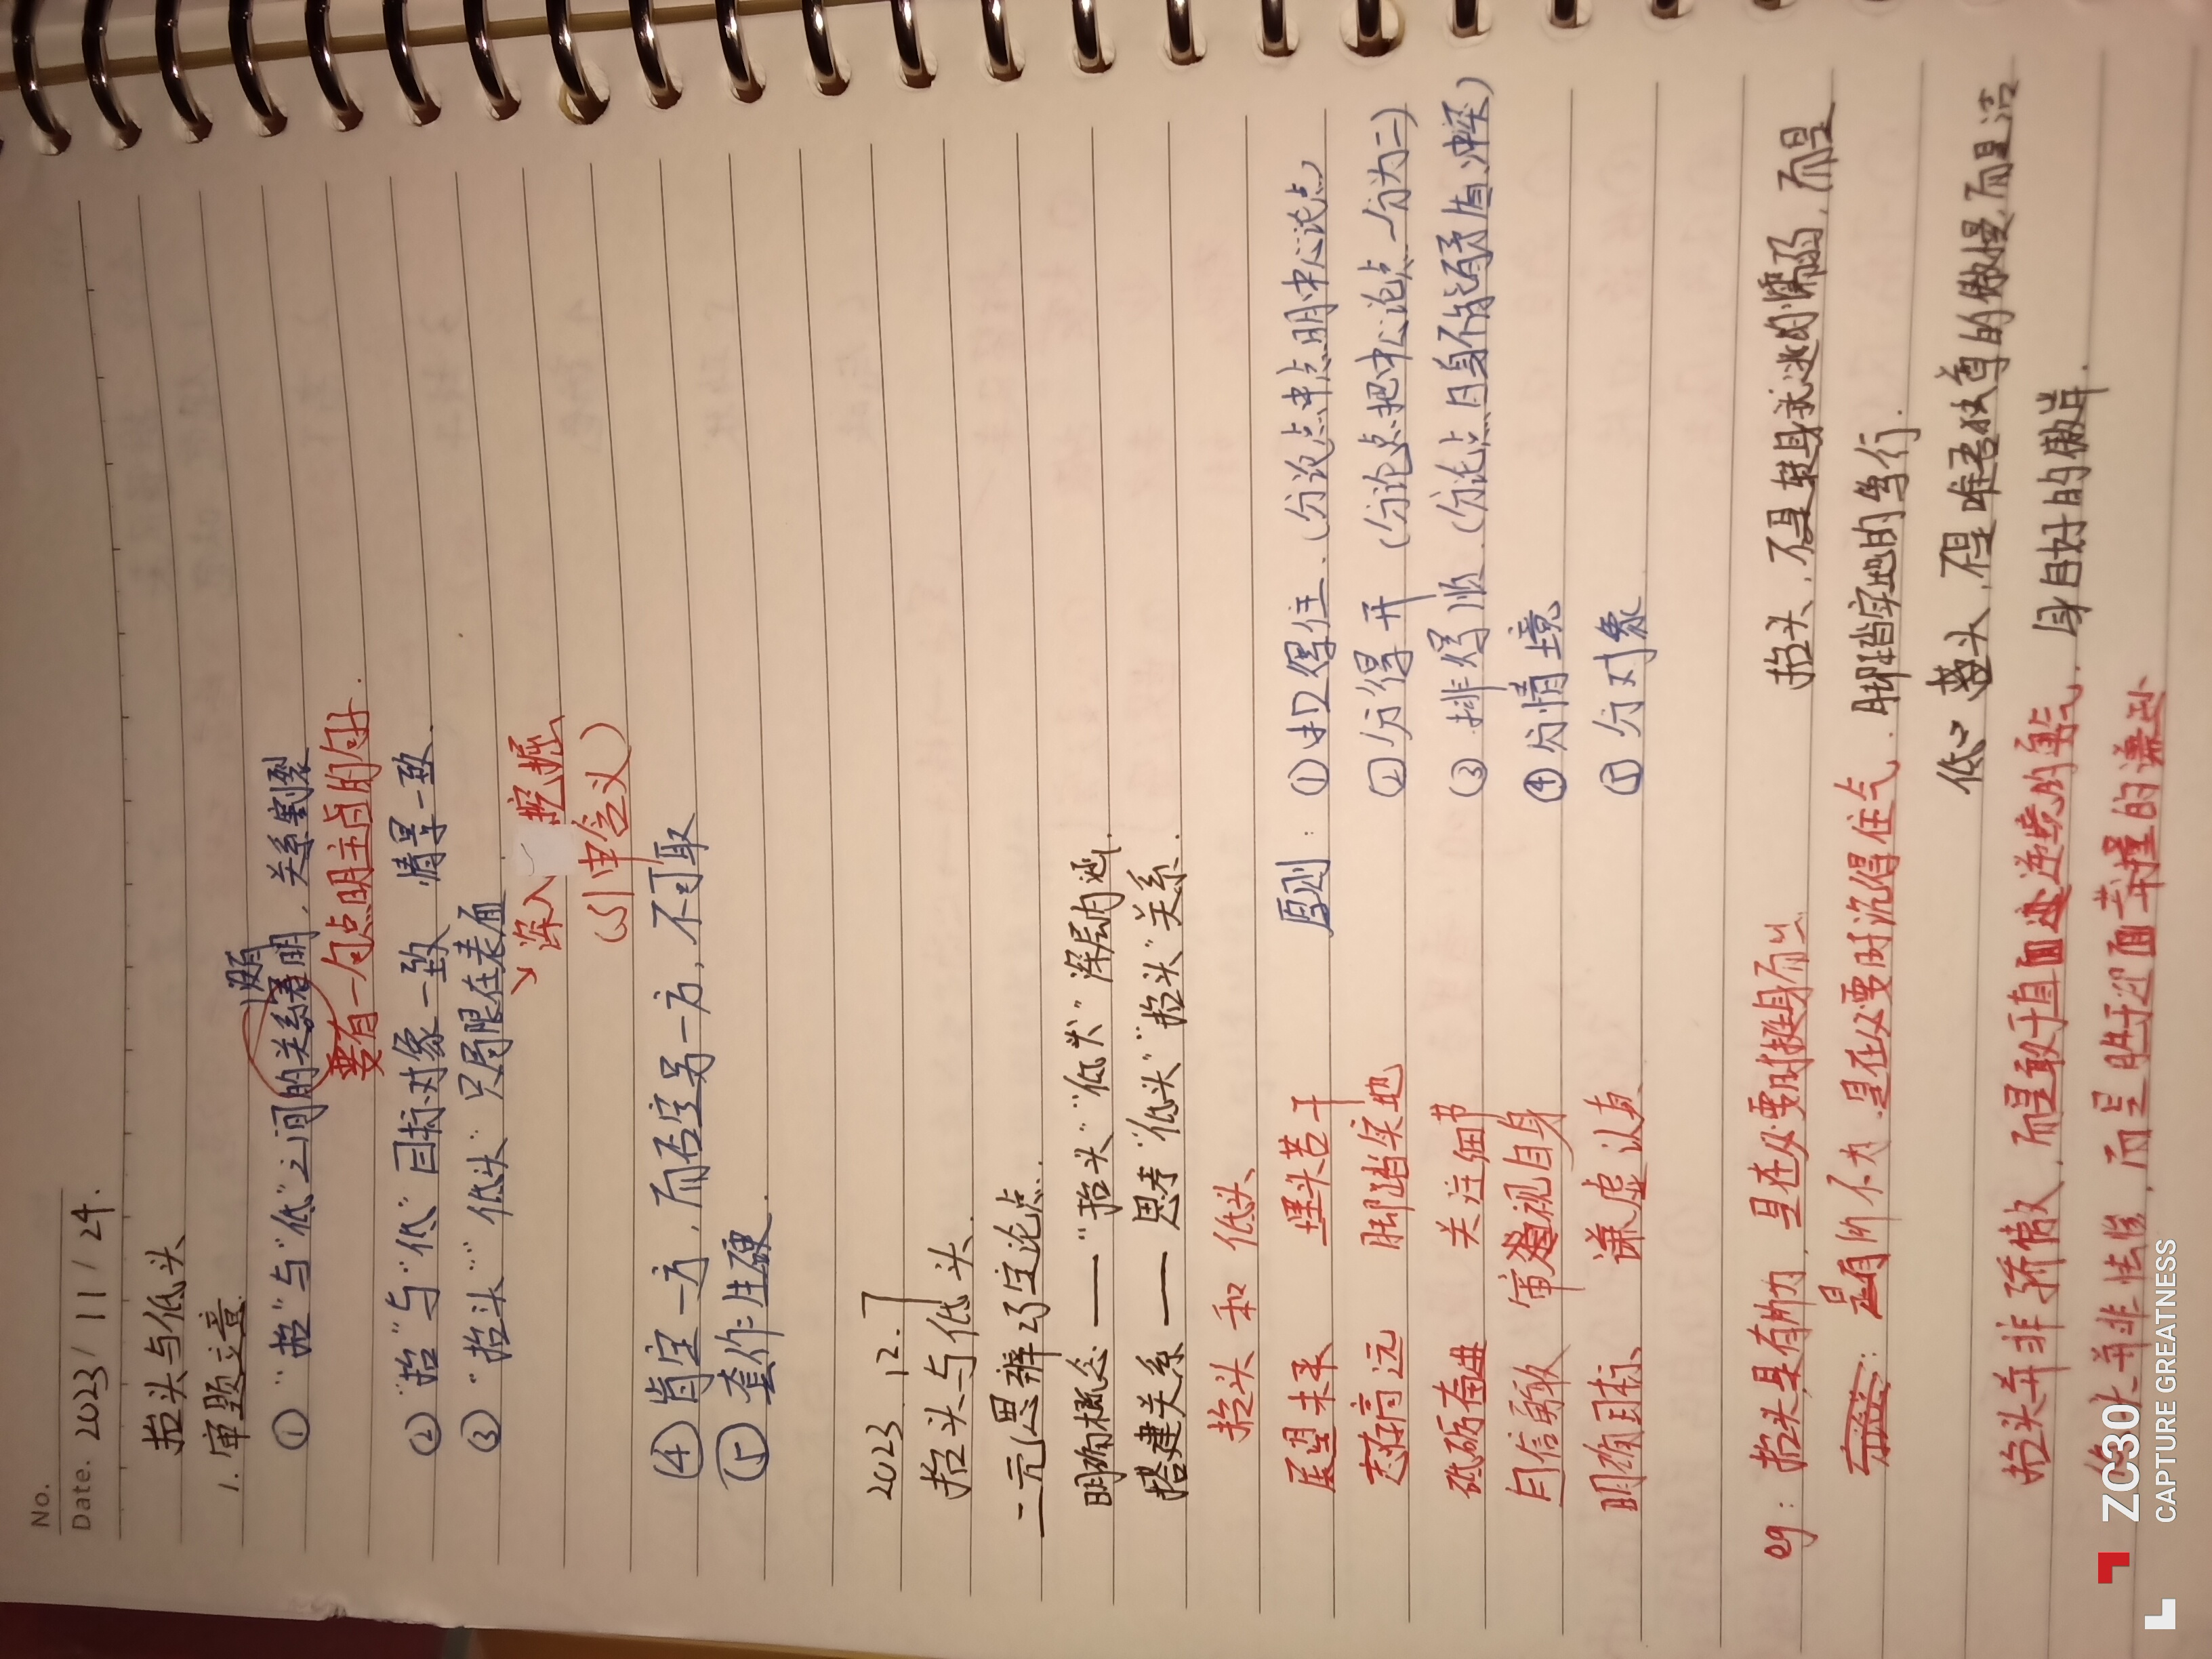 No.
Date. 2023/11/24.
抬头与低头
1. 审题立意
须
① "抬"与"低"之间的关系着明，关系割裂
要有一句点明主旨的句子
② "抬"与"低"目标对象一致 情景一致.
③ "抬头""低头"只局限在表面
↘深入 挖掘
(引申含义)
④ 肯定一方，而否定另一方，不可取
⑤ 套作生硬.
2023.12.7
抬头与低头.
二元思辨巧定论点.
明确概念——"抬头""低头"深层内涵.
搭建关系——思考"低头""抬头"关系.
抬头 和 低头
展望未来 埋头苦干
志存高远 脚踏实地
砥砺奋进 关注细节
自信勇敢 审视自身
明确目标 谦虚认真
原则: ①扣得住.(分论点中点明中心论点)
②分得开 (分论点把中心论点一分为二)
③排得顺.(分论点自身不能矛盾冲突)
④分情境
⑤分对象
eg: 抬头是有所为，是在必要时挺身而出
是有所不为.是在必要时沉得住气.
抬头并非骄傲，而是敢于直面逆境的勇气.
低头并非怯懦，而是 的谦逊
抬头，不是转身就逃的懦弱，而是
脚踏实地的笃行.
低头，不是唯吾独尊的傲慢而是洁
身自好的傲岸.
ZC30
CAPTURE GREATNESS